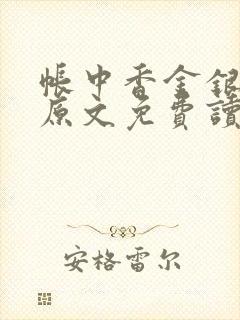 帳中香金銀
原文免費讀
安格雷尔